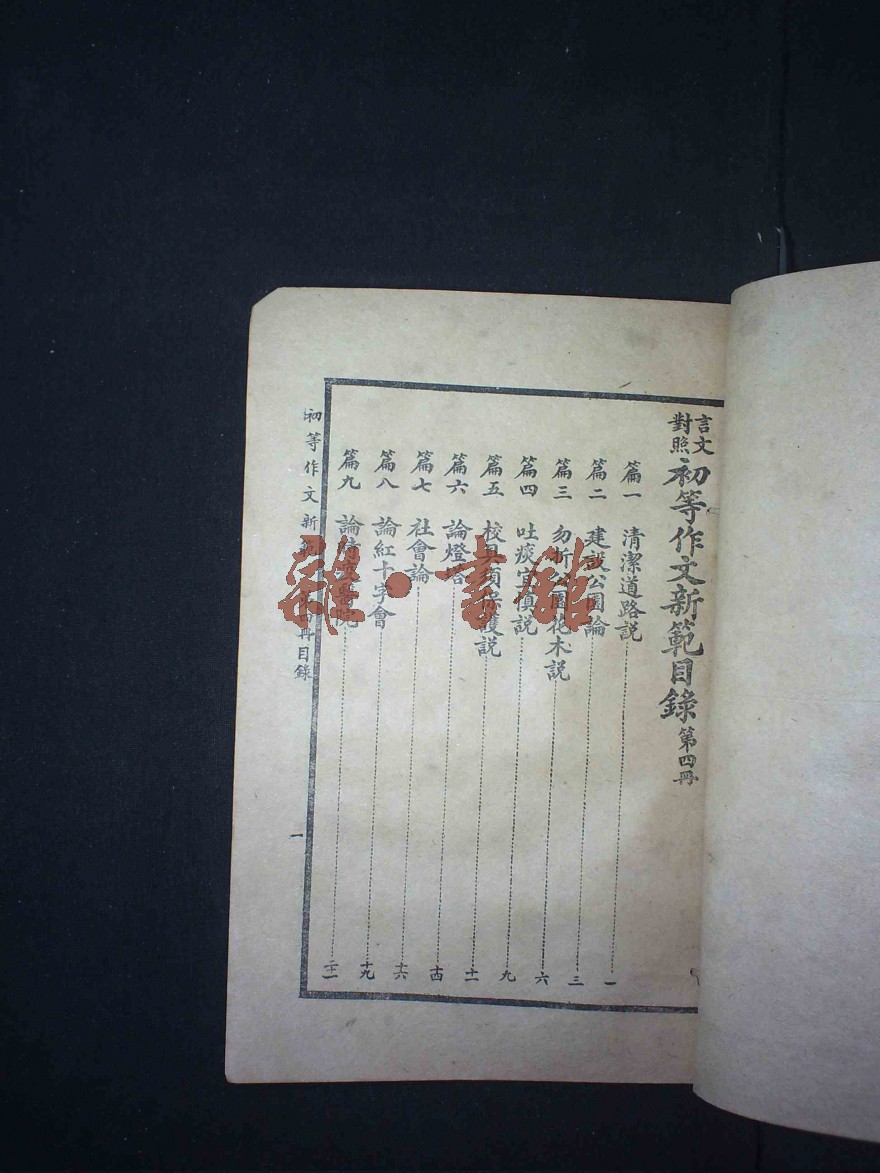 言文對照初等作文新範目錄 第四冊
篇一 清潔道路說 一
篇二 建設公園論 三
篇三 勿折公園花木說 六
篇四 吐痰宜慎說 九
篇五 校具須保護說 十一
篇六 論燈塔 十四
篇七 社會論 十六
篇八 論紅十字會 十九
篇九 論時疫醫院 二十一
初等作文新範 第四冊目錄 一
雜·書館